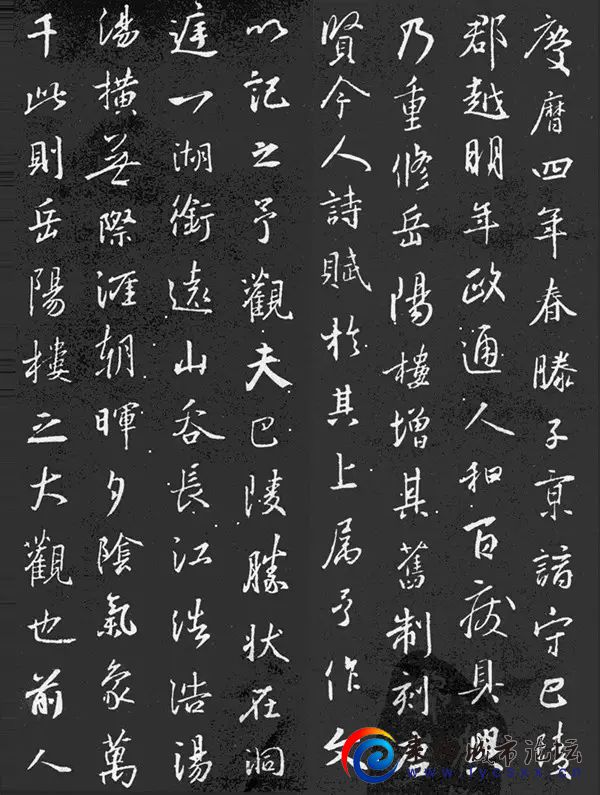 慶曆四年春滕子京謫守巴陵
郡越明年政通人和百廢具興
乃重修岳陽樓增其舊制刻唐
賢今人詩賦於其上属予作文
以記之予觀夫巴陵勝状在洞
庭一湖銜遠山吞長江浩浩湯
湯横無際涯朝暉夕陰氣象萬
千此則岳陽樓之大觀也前人
城市论坛